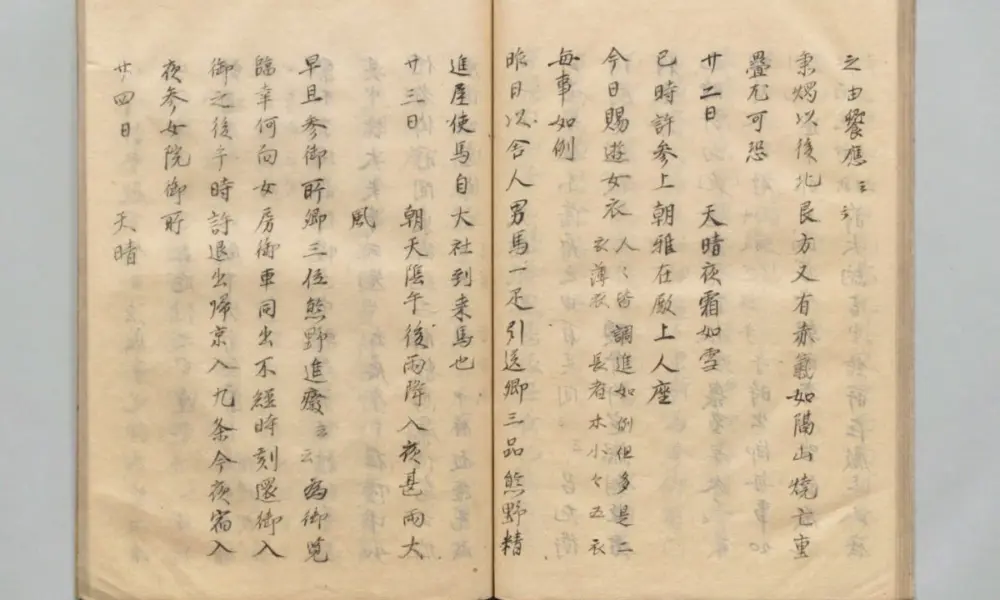 之由饗應云々
秉燭以後北艮方又有赤氣如隔山燒亡重
疊尤可恐
廿二日　天晴夜霜如雪
巳時許參上朝雅在殿上人座
今日賜遊女衣人々皆調進如例但多是二
衣薄衣　長者木小々五衣
每事如例
昨日以舍人男馬一疋引送卿三品熊野精
進屋使馬自大社到来馬也
廿三日　朝天陰午後雨降入夜甚雨大
風
早旦參御所卿三位熊野進發云云為御覧
臨幸何向女房御車同出不經時刻還御入
御之後午時許退出歸京入九条今夜宿入
夜參女院御所
廿四日　天晴